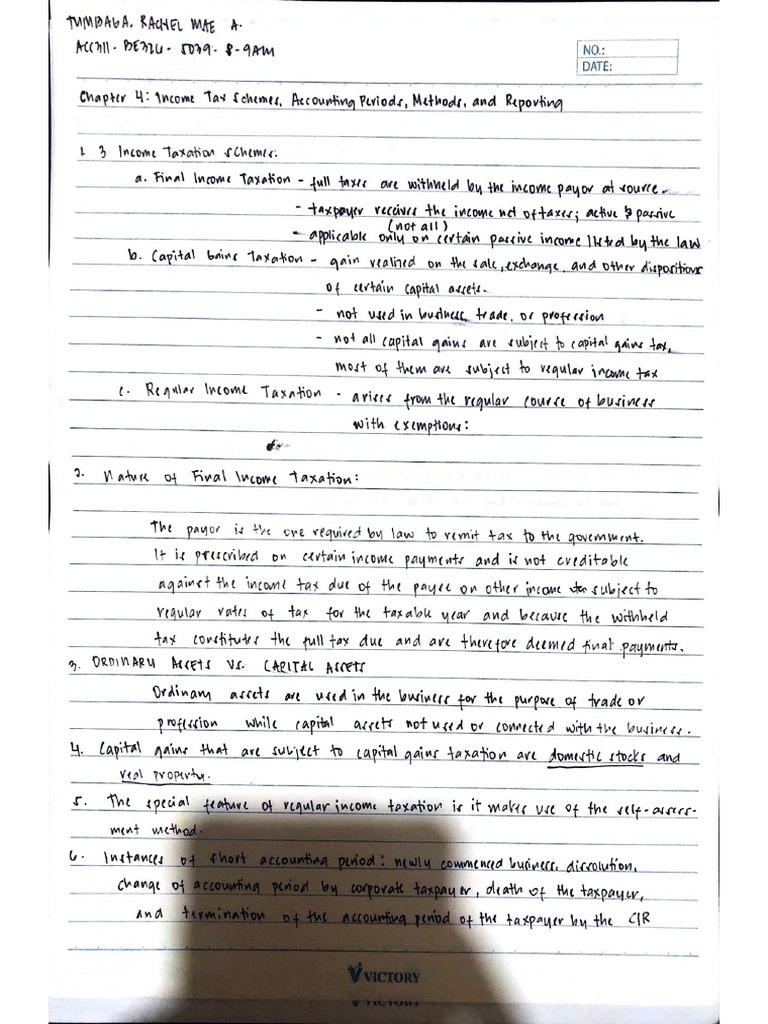 TUMBAGA, RACHEL MAE A.
ACC311 - BE324 - 5039 - 8-9AM
NO.:
DATE:
Chapter 4: Income Tax Schemes, Accounting Periods, Methods, and Reporting
1. 3 Income Taxation schemes:
a. Final Income Taxation - full taxes are withheld by the income payor at source.
- taxpayer receives the income net of taxes; active & passive
(not all)
- applicable only on certain passive income listed by the law
b. Capital Gains Taxation - gain realized on the sale, exchange, and other dispositions
of certain capital assets.
- not used in business, trade, or profession
- not all capital gains are subject to capital gains tax,
most of them are subject to regular income tax
c. Regular Income Taxation - arises from the regular course of business
with exemptions:
2. Nature of Final Income Taxation:
The payor is the one required by law to remit tax to the government.
It is prescribed on certain income payments and is not creditable
against the income tax due of the payee on other income subject to
regular rates of tax for the taxable year and because the withheld
tax constitutes the full tax due and are therefore deemed final payments.
3. ORDINARY ASSETS VS. CAPITAL ASSETS
Ordinary assets are used in the business for the purpose of trade or
profession while capital assets not used or connected with the business.
4. Capital gains that are subject to capital gains taxation are domestic stocks and
real property.
5. The special feature of regular income taxation is it makes use of the self-assess-
ment method.
6. Instances of short accounting period: newly commenced business, dissolution,
change of accounting period by corporate taxpayer, death of the taxpayer,
and termination of the accounting period of the taxpayer by the CIR
VICTORY
VICTORY